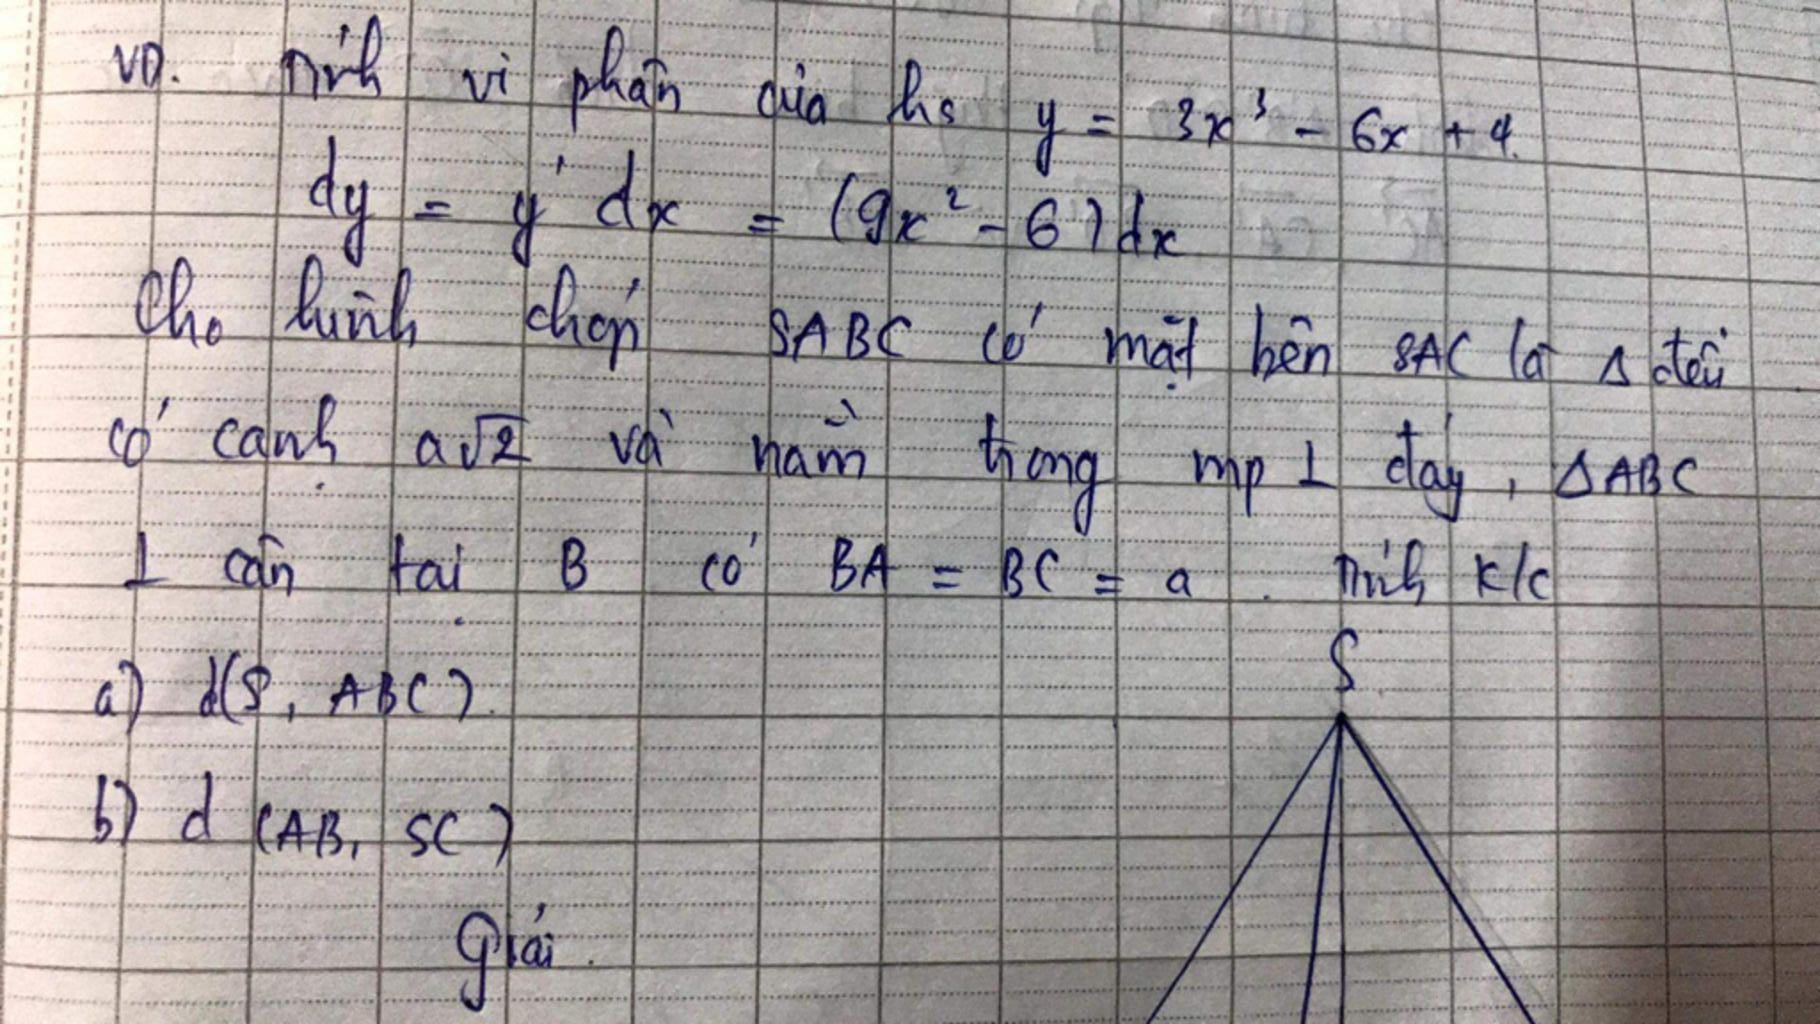 VD. Tính vi phân của hs y = 3x³ - 6x + 4.
dy = y' dx = (9x² - 6) dx
Cho hình chóp SABC có mặt bên SAC là Δ đều
có cạnh a√2 và nằm trong mp ⊥ đáy, ΔABC
⊥ cân tại B có BA = BC = a. Tính k/c
S
a) d(S, ABC).
b) d (AB, SC)
Giải.